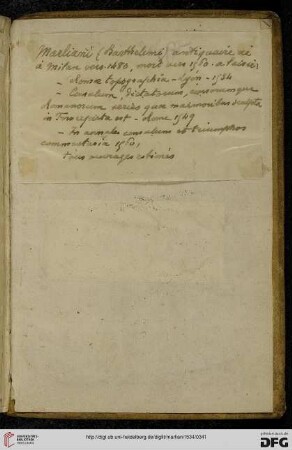 Marliani (Barthélemi) antiquaire né
à Milan vers 1488, mort vers 1560. a laissé,
— Romæ topographia — Lyon — 1534
— Consulum, Dictatorum, Censorumque
Romanorum series quæ marmoribus sculpta
in Foro reperta est — Rome 1549
— In annales consulum et triumphos
commentaria 1560,
tous ouvrages estimés
http://digi.ub.uni-heidelberg.de/diglit/marliani1534/0341
UNIVERSITÄTS-
BIBLIOTHEK
HEIDELBERG
gefördert durch die
DFG